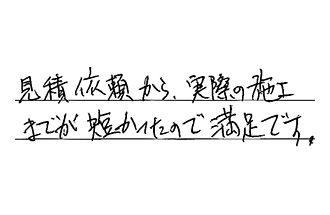 見積依頼から、実際の施工
までが短かったので満足です。